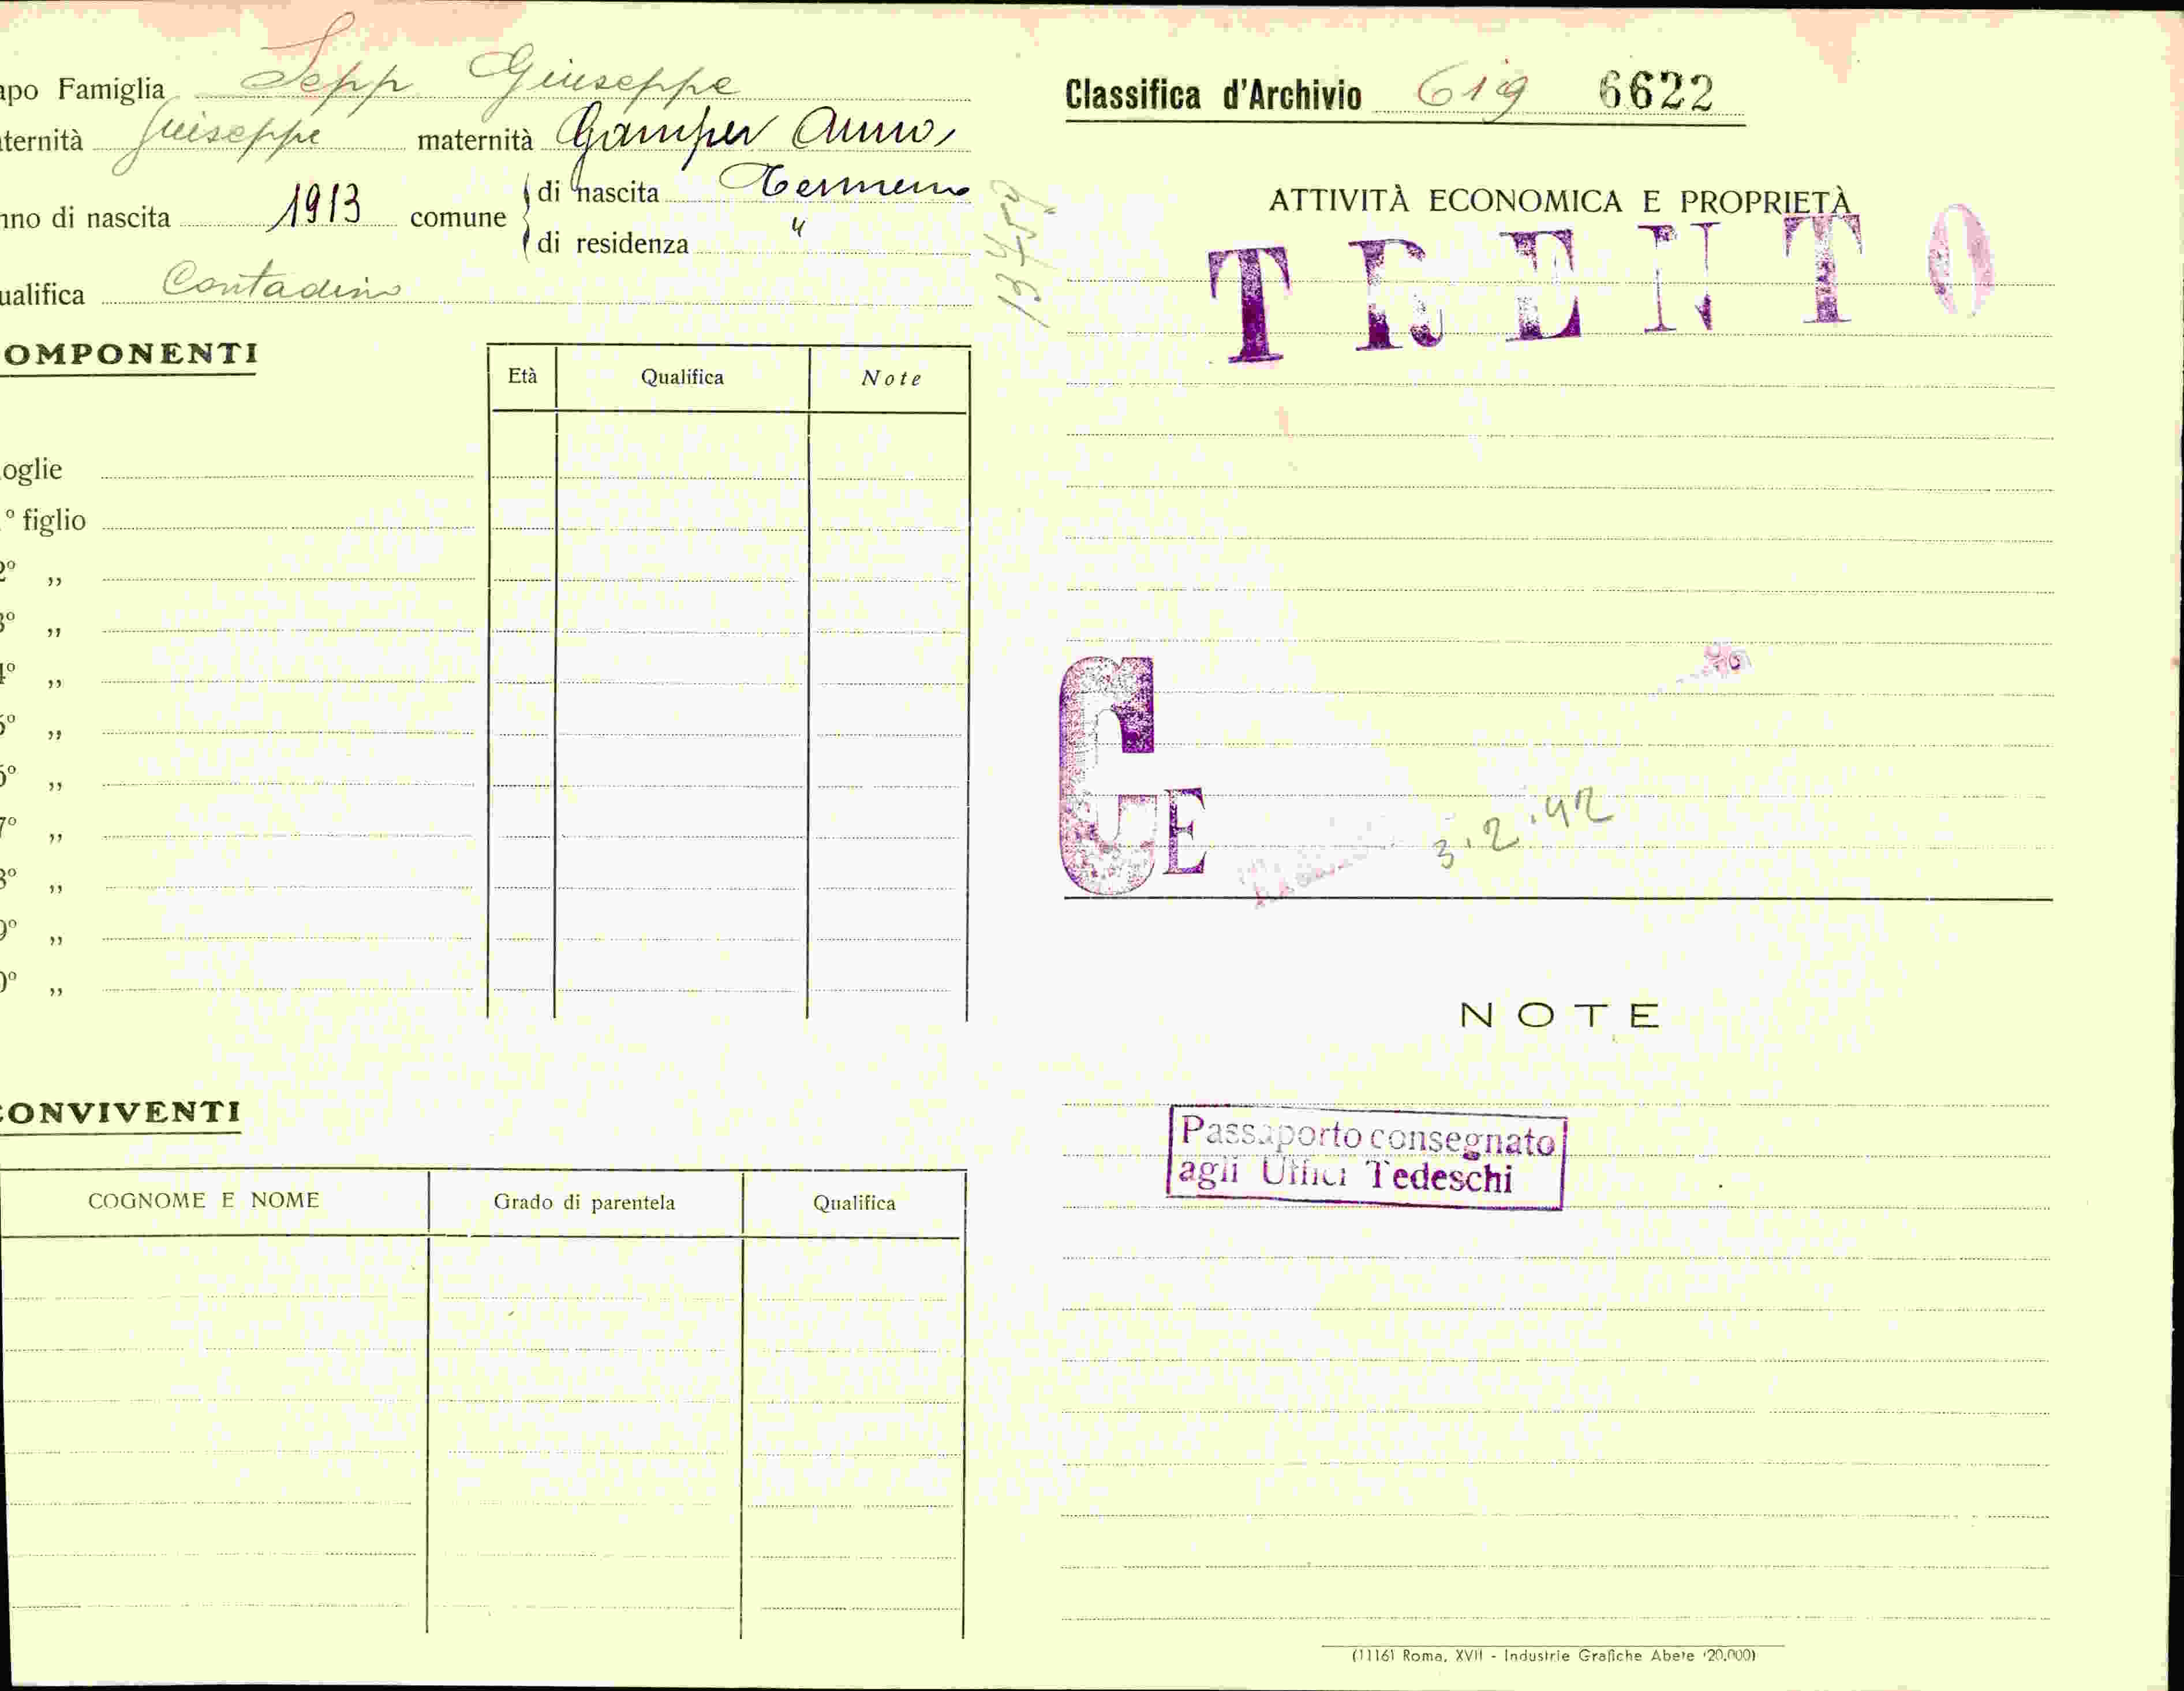 apo Famiglia Sepp Giuseppe
aternità Giuseppe maternità Gamper Anna
nno di nascita 1913 comune di nascita Termeno
di residenza "
ualifica Contadino
137459
OMPONENTI
Età Qualifica Note
oglie
° figlio
2° „
3° „
4° „
5° „
6° „
7° „
8° „
9° „
0° „
CONVIVENTI
COGNOME E NOME Grado di parentela Qualifica
Classifica d'Archivio 619 6622
ATTIVITÀ ECONOMICA E PROPRIETÀ
TRENTO
CE
3.2.42
NOTE
Passaporto consegnato
agli Uffici Tedeschi
(11161 Roma, XVII - Industrie Grafiche Abete (20.000)